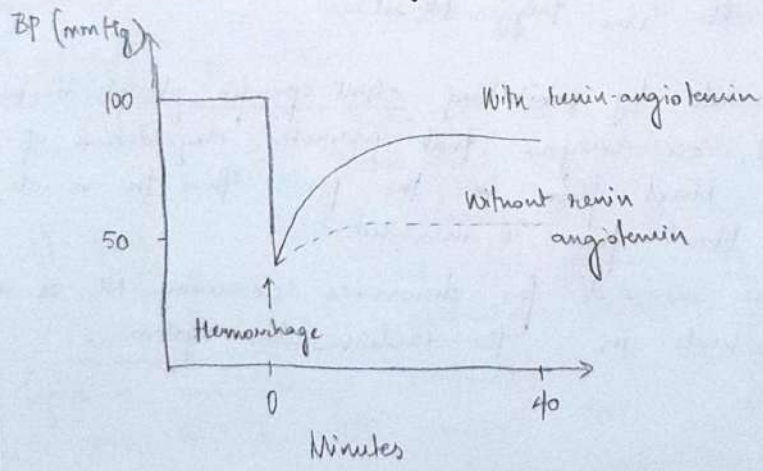 BP (mmHg)
100
With renin-angiotensin
Without renin
angiotensin
50
Hemorrhage
0
40
Minutes